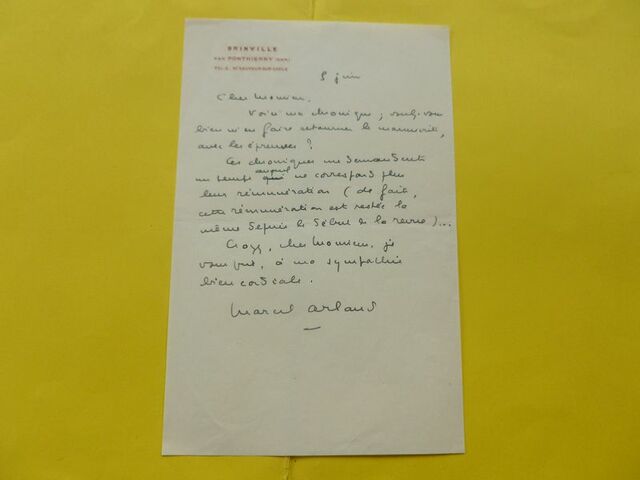 BRINVILLE
PAR PONTHIERRY (S&M)
TEL. 2. ST SAUVEUR-SUR-ECOLE
8 juin
Cher Monsieur,
Voici ma chronique ; voulez-vous
bien m'en faire retourner le manuscrit,
avec les épreuves ?
Ces chroniques me demandent
un temps auquel ne correspond plus
leur rémunération (de fait,
cette rémunération est restée la
même depuis le début de la revue)...
Croyez, cher Monsieur, je
vous prie, à ma sympathie
bien cordiale.
Marcel Arland